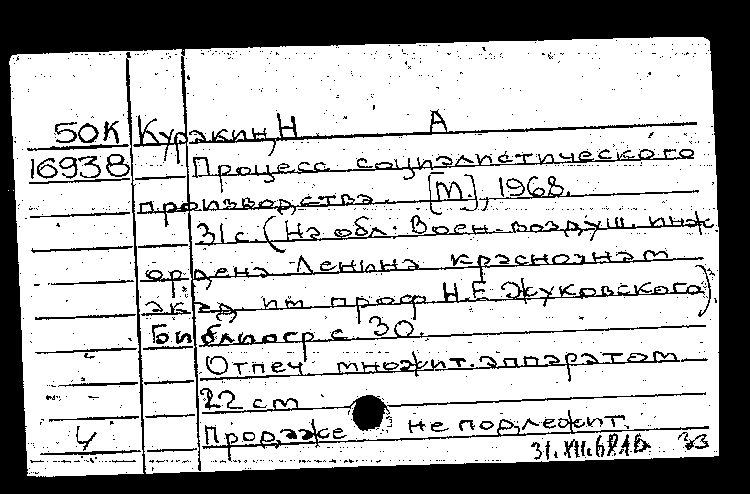 50К Куракин, Н А
16938 Процесс социалистического
производства. [М.], 1968.
31 с. (На обл: Воен. воздуш. инж.
ордена Ленина краснознам
акад им проф Н.Е Жуковского).
Библиогр с 30.
Отпеч. множит. аппаратом
22 см
4 Продаже не подлежит.
31.XII.68
33